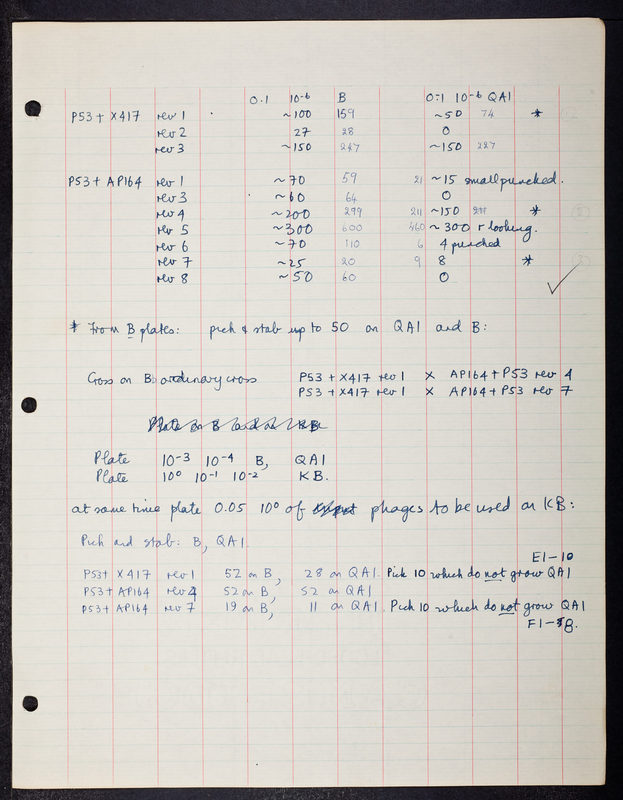 0.1 10⁻⁶ B 0.1 10⁻⁶ QA1
P53 + X417 rev 1 ~100 159 ~50 74 *
rev 2 27 28 0
rev 3 ~150 247 ~150 227
P53 + AP164 rev 1 ~70 59 21 ~15 small puncked.
rev 3 ~60 64 0
rev 4 ~200 299 211 ~150 *
rev 5 ~300 600 360 ~300 r looking.
rev 6 ~70 110 6 4 puncked
rev 7 ~25 20 9 8 *
rev 8 ~50 60 0
* From B plates: pick & stab up to 50 on QA1 and B:
Cross on Bb ordinary cross P53 + X417 rev 1 X AP164 + P53 rev 4
P53 + X417 rev 1 X AP164 + P53 rev 7
Plate on B and on KB
Plate 10⁻³ 10⁻⁴ B, QA1
Plate 10⁰ 10⁻¹ 10⁻² KB.
at same time plate 0.05 10⁰ of phages to be used on KB:
Pick and stab: B, QA1.
E1-10
P53 + X417 rev 1 52 on B, 28 on QA1. Pick 10 which do not grow QA1
P53 + AP164 rev 4 52 on B, 52 on QA1
P53 + AP164 rev 7 19 on B, 11 on QA1. Pick 10 which do not grow QA1
F1-8.